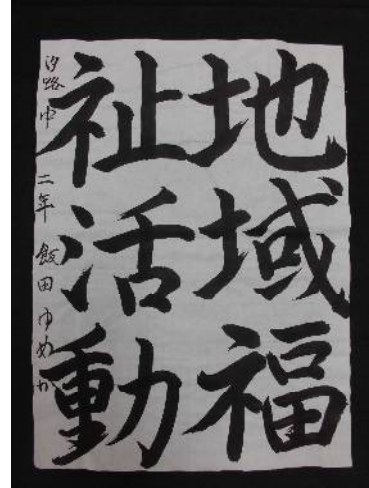 地域福
祉活動
汐路中 二年 飯田ゆめか